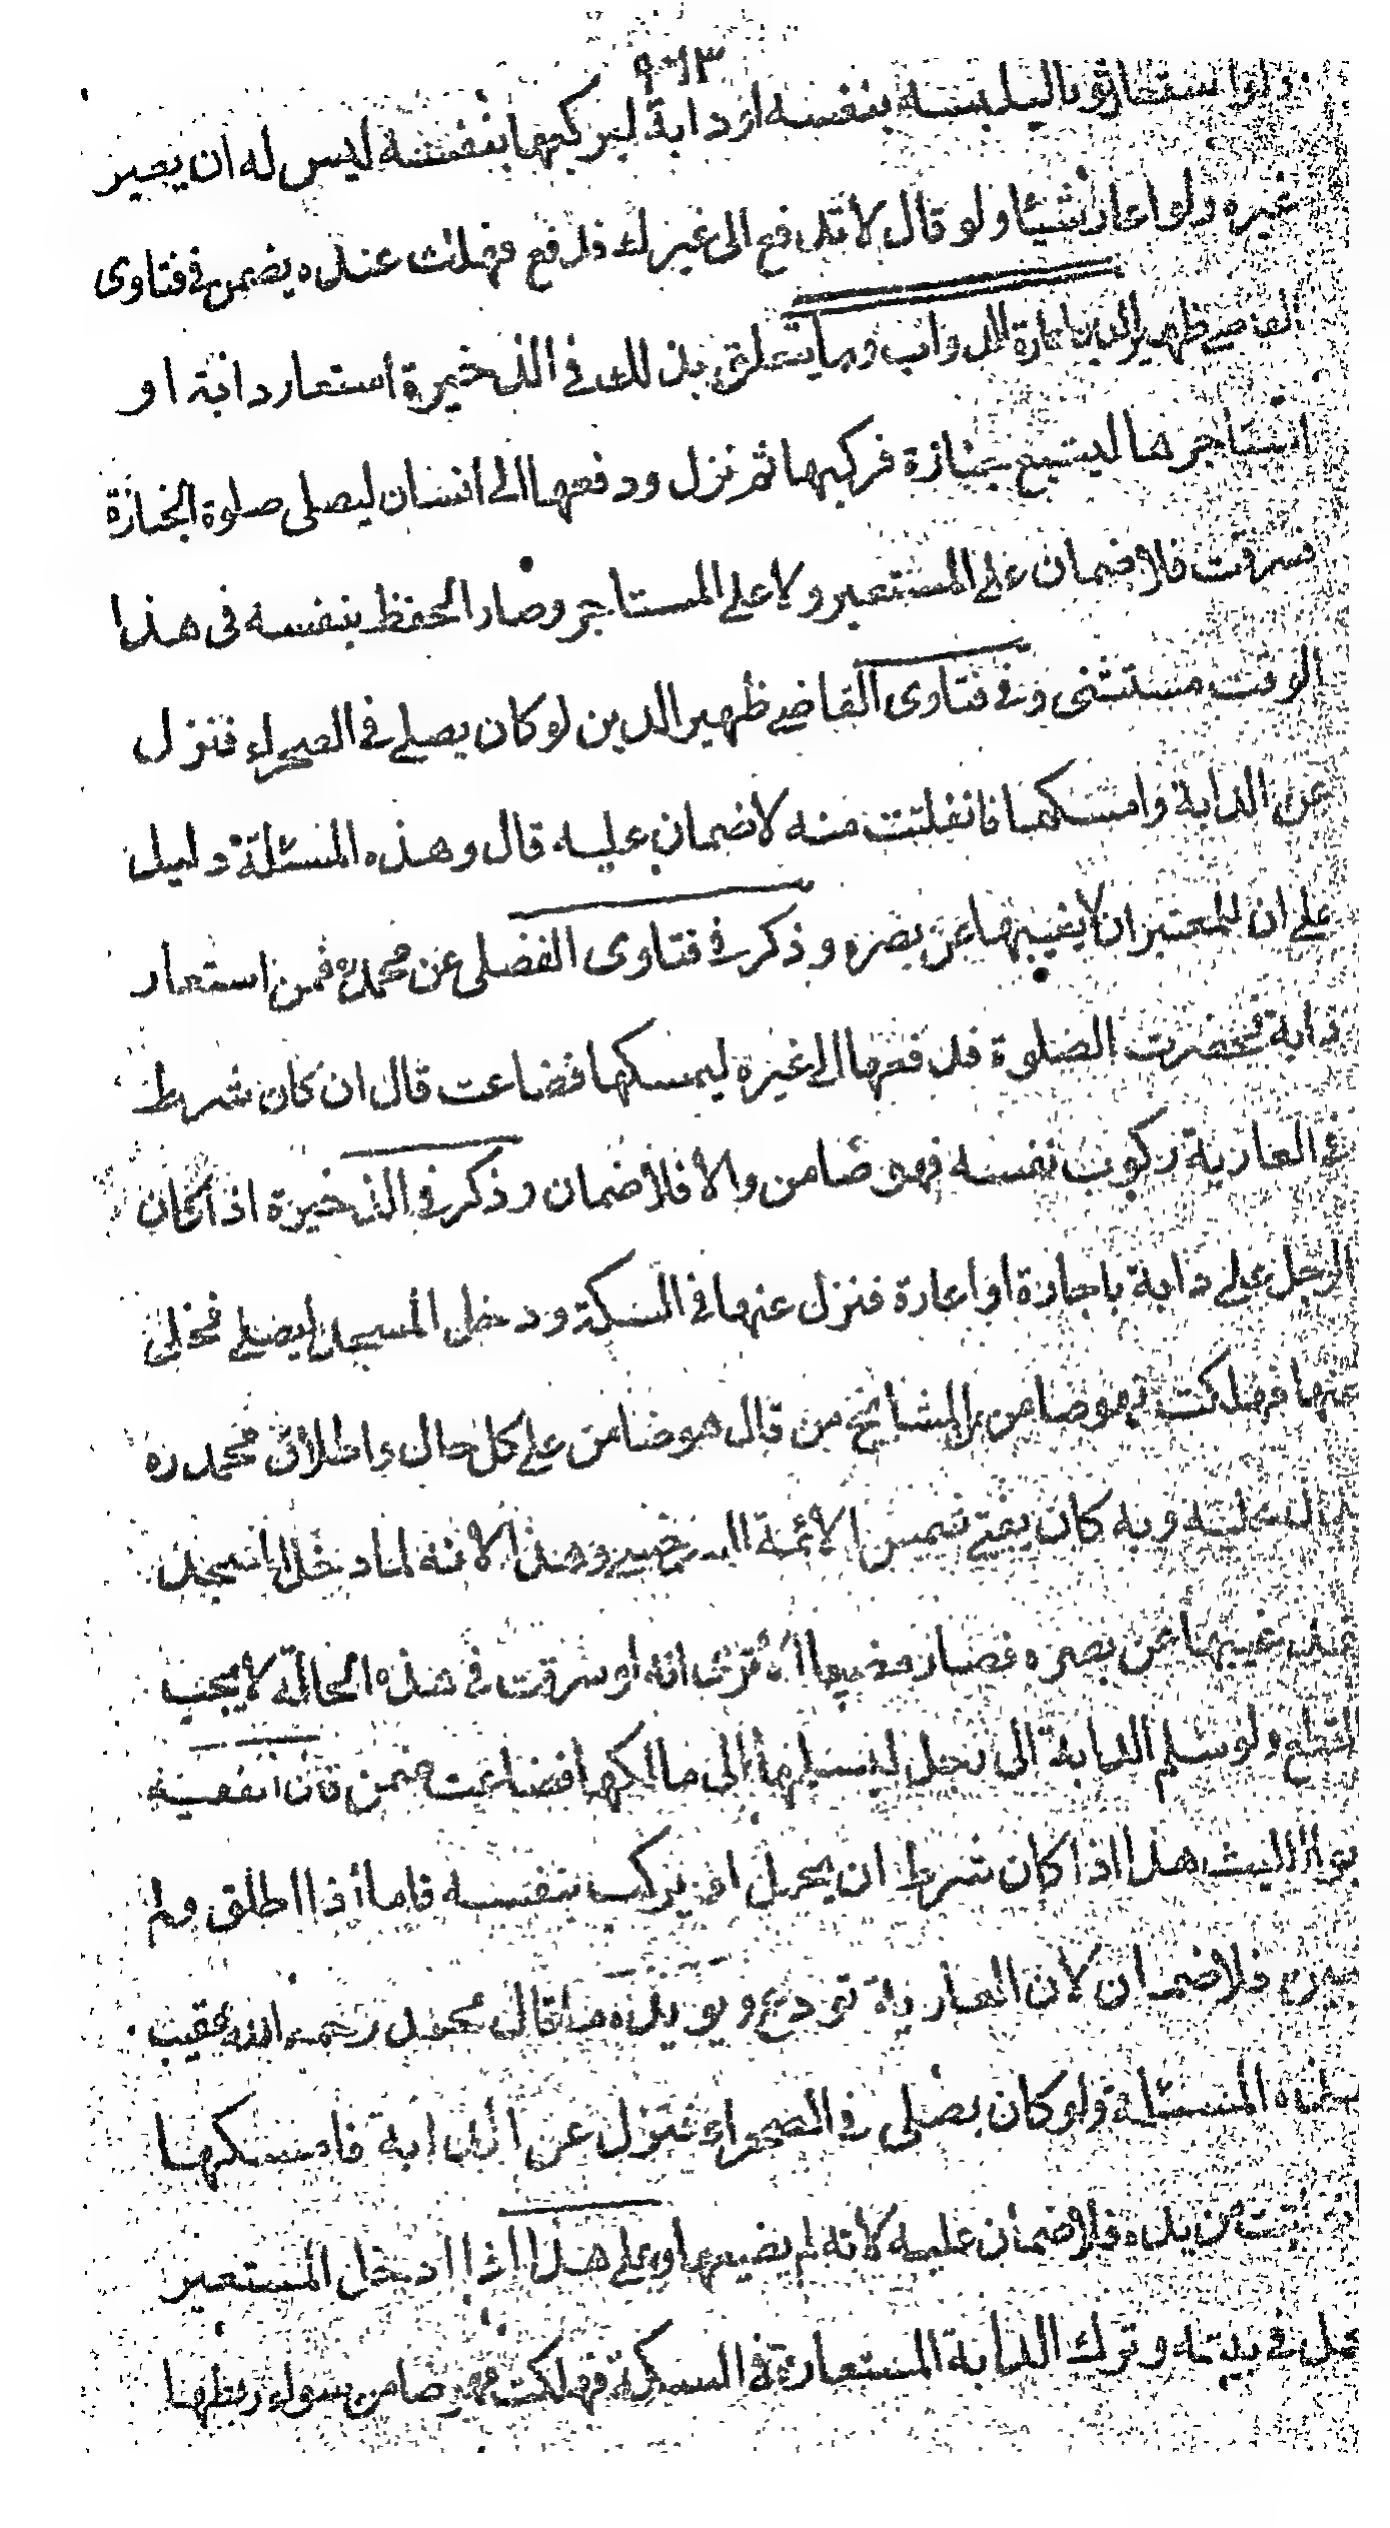 ٩٠١٣
ولو استعار ثوبا ليلبسه بنفسه او دابة ليركبها بنفسه ليس له ان يعير
غيره ولو اعار شيئا ولو قال لا تدفع الى غيرك فدفع فهلكت عنده يضمن في فتاوى
القاضي ظهير الدين اعارة الدواب وما يتعلق بذلك في الذخيرة استعار دابة او
استاجرها ليتبع جنازة فركبها ثم نزل ودفعها الى انسان ليصلى صلوة الجنازة
فسرقت فلا ضمان على المستعير ولا على المستاجر وصار الحفظ بنفسه في هذا
الوقت مستثنى وفي فتاوى القاضي ظهير الدين لو كان يصلى في الصحراء فنزل
عن الدابة وامسكها فانفلتت منه لا ضمان عليه قال وهذه المسئلة دليل
على ان المعتبر ان لا يغيبها عن بصره وذكر في فتاوى الفضلى عن محمد ره فمن استعار
دابة فحضرت الصلوة فدفعها الى غيره ليمسكها فضاعت قال ان كان شرط
في العارية ركوب نفسه فهو ضامن والا فلا ضمان وذكر في الذخيرة اذا كان
الرجل على دابة باجارة او اعارة فنزل عنها في السكة ودخل المسجد ليصلى فخلى
عنها فهلكت فهو ضامن من المشايخ من قال هو ضامن على كل حال واطلاق محمد ره
وبه كان يفتى شمس الائمة السرخسى وهذا لانه لما دخل المسجد
غيبها عن بصره فصار مضيعا الا ترى انه لو سرقت في هذه الحالة لا يجب
القطع ولو سلم الدابة الى رجل ليسلمها الى مالكها فضاعت ضمن قال الفقيه
ابو الليث هذا اذا كان شرط ان يحمل او يركب بنفسه فاما اذا اطلق ولم
فلا ضمان لان العارية تودع ويويده ما قال محمد رحمه الله عقيب
هذه المسئلة ولو كان يصلى في الصحراء فنزل عن الدابة فامسكها
من يده فلا ضمان عليه لانه لم يضيعها وعلى هذا اذا ادخل المستعير
في بيته وترك الدابة المستعارة في السكة فهلكت فهو ضامن سواء ربطها